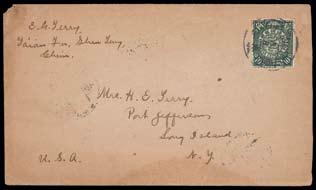 E. G. Terry,
Taian Fu, Shan Tung,
China.
Mrs. H. E. Terry,
Port Jefferson,
Long Island,
N. Y.
U. S. A.